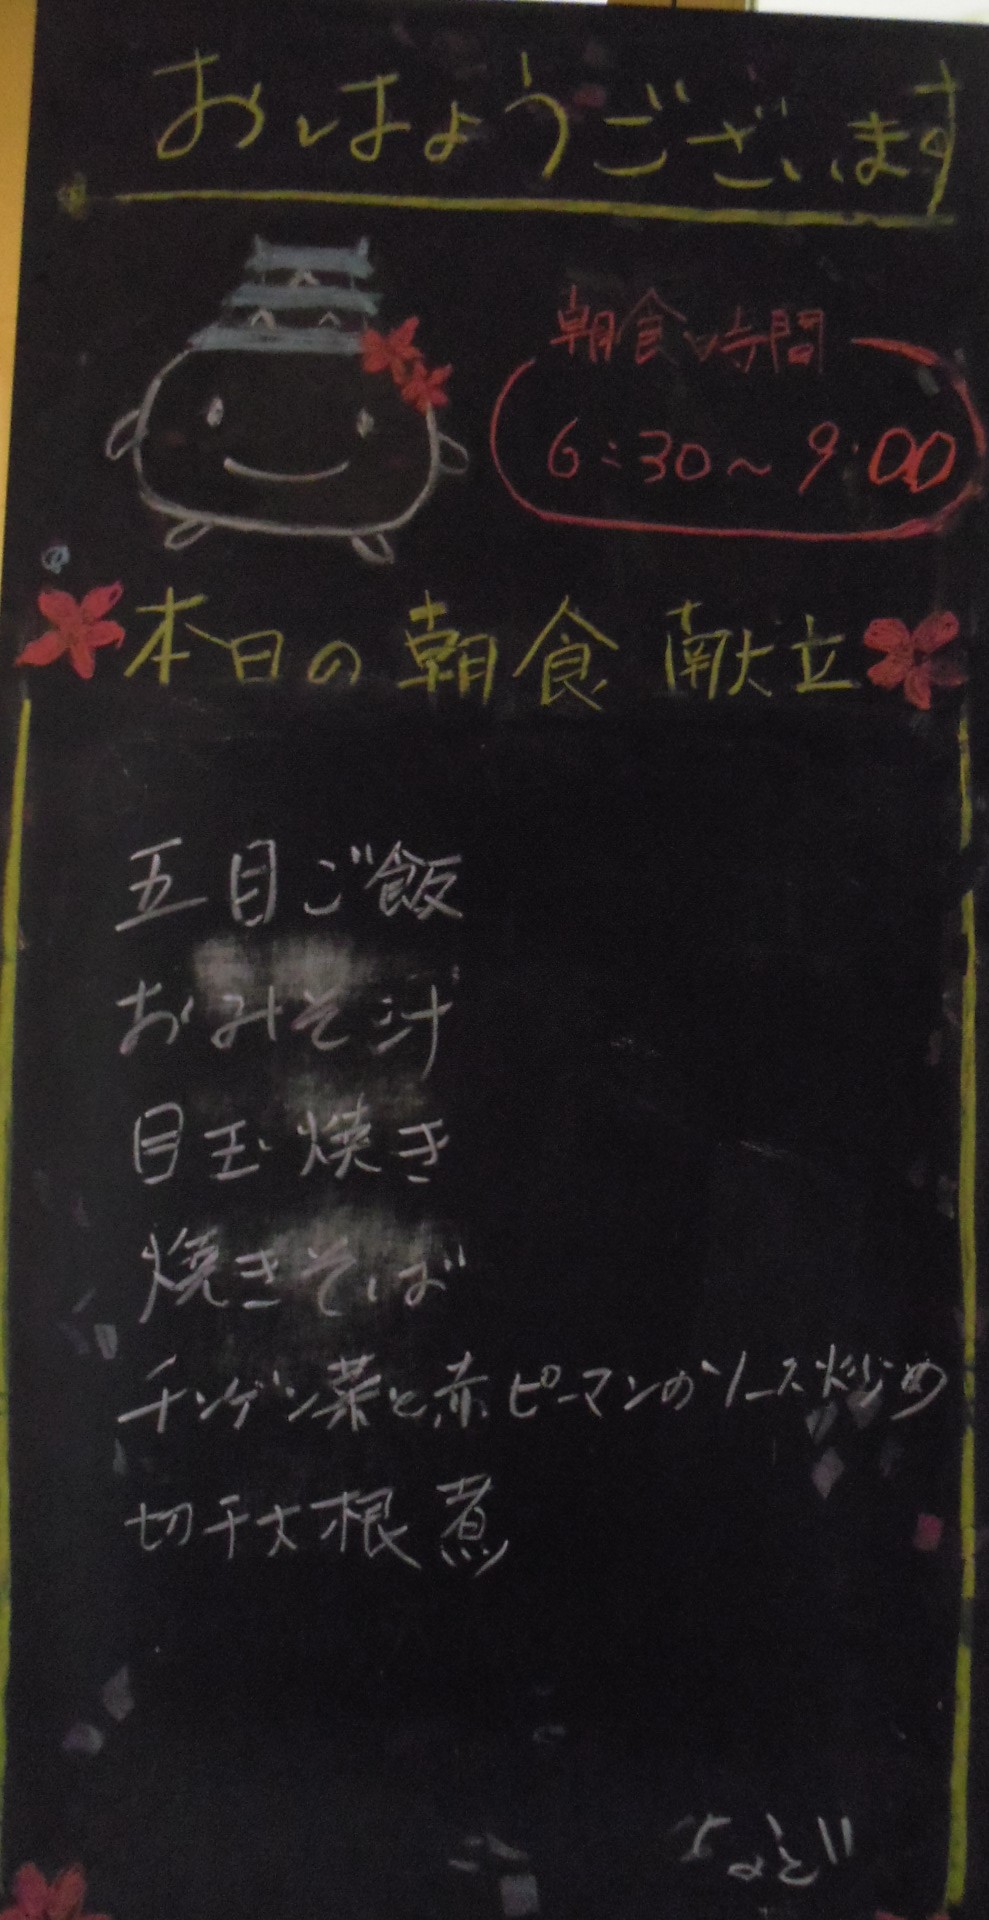 おはようございます
朝食時間
6:30～9:00
本日の朝食献立
五目ご飯
おみそ汁
目玉焼き
焼きそば
チンゲン菜と赤ピーマンのソース炒め
切干大根煮
など!!